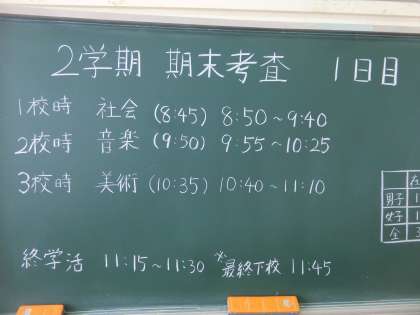 2学期 期末考査 1日目
1校時 社会 (8:45) 8:50～9:40
2校時 音楽 (9:50) 9:55～10:25
3校時 美術 (10:35) 10:40～11:10
終学活 11:15～11:30 ※最終下校 11:45
左
男子 1
女子 1
全 3